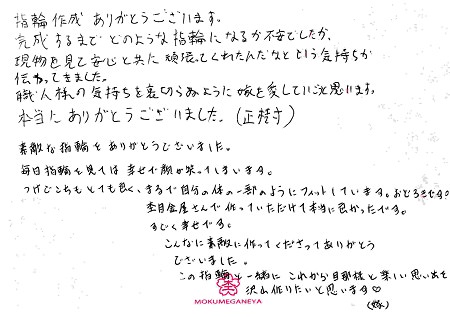 指輪作成ありがとうございます。
完成するまでどのような指輪になるか不安でしたが、
現物を見て安心と共に頑張ってくれたんだなという気持ちが
伝わってきました。
職人様の気持ちを裏切らぬように嫁を愛していこうと思います。
本当にありがとうございました。(正
素敵な指輪をありがとうございました。
毎日指輪を見ては幸せで顔が笑ってしまいます。
つけごこちもとても良く、まるで自分の体の一部のようにフィットしています。おどろきです!
杢目金屋さんで作っていただけて本当に良かったです。
すごく幸せです。
こんなに素敵に作ってくださってありがとう
ございました。
この指輪と一緒にこれから旦那様と楽しい思い出を
沢山作りたいと思います♡
(嫁)
MOKUMEGANEYA